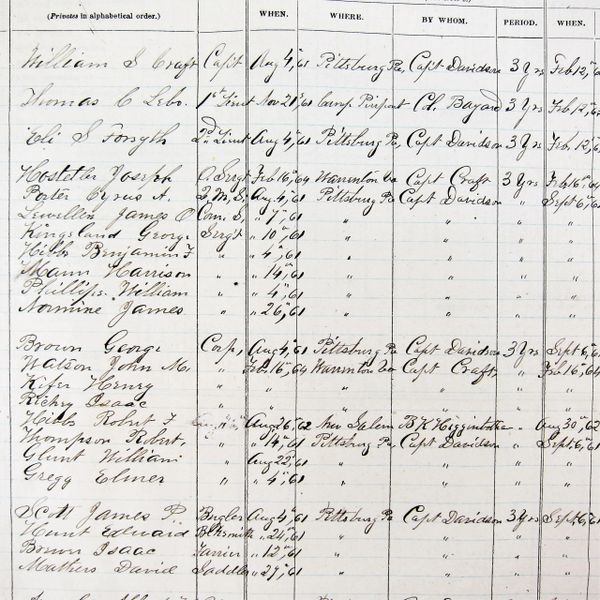 (Privates in alphabetical order.) WHEN. WHERE. BY WHOM. PERIOD. WHEN.
William S Craft Capt Aug 4", 61 Pittsburg Pa, Capt Davidson 3 Yrs Feb 12",
Thomas C Lebo. 1st Lieut Nov 21st, 61 Camp Pierpont Col. Bayard 3 Yrs Feb 12",
Eli S Forsyth 2nd Lieut Aug 4", 61 Pittsburg Pa, Capt Davidson 3 Yrs Feb. 12",
Hostetler Joseph Sergt Feb 16", 64 Warrenton Va Capt Craft 3 Yrs Feb 16", 64
Porter Cyrus A. Q. M. S, Aug 4, 61 Pittsburg Pa Capt Davidson " Sept 6", 61
Lewellin James O Com. S, " 7", 61 " " "
Kingsland George Sergt " 10", 61 " " "
Hibbs Benjamin F " " 4", 61 " " "
Mann Harrison " " 14", 61 " " "
Phillips William " " 4", 61 " " "
Normine James " " 26", 61 " " "
Brown George Corp, Aug 4", 61 Pittsburg Pa Capt Davidson 3 Yrs Sept 6", 61
Watson John M. " Feb 16", 64 Warrenton Va Capt Craft, " Feb 16", 64
Kifer Henry " " " " " "
Richey Isaac " " " " " "
Hibbs Robert F " Aug 26", 62 New Salem B K Higginbotham " Aug 30", 62
Thompson Robert, " " 14", 61 Pittsburg Pa, Capt Davidson " Sept, 6", 61
Glunt William " Aug 22", 61 " " " "
Gregg Elmer " " 4", 61 " " " "
Scott James P. Bugler Aug 4", 61 Pittsburg Pa Capt Davidson 3 Yrs Sept 6", 61
Hunt Edward Blksmith " 24", 61 " " " "
Brown Isaac Farrier " 12", 61 " " " "
Mathers David Saddler " 27", 61 " " " "